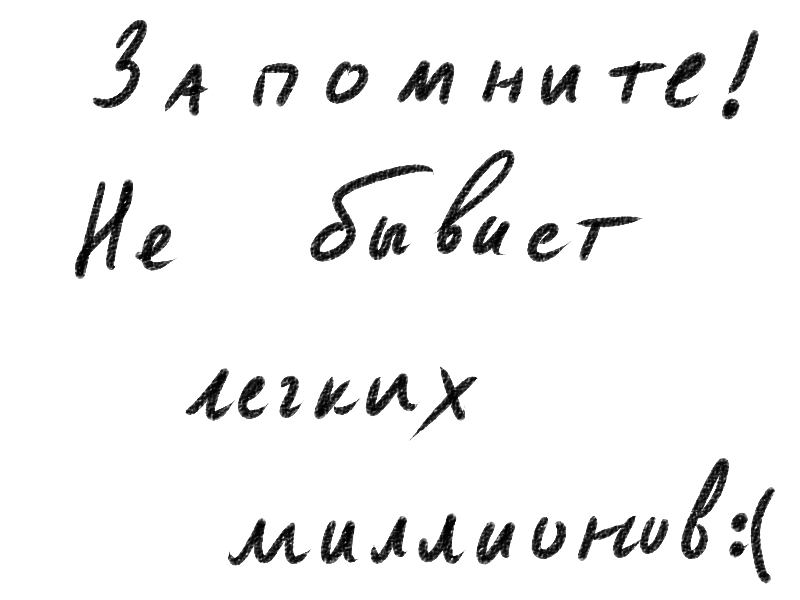 Запомните!
Не бывает
легких
миллионов:(